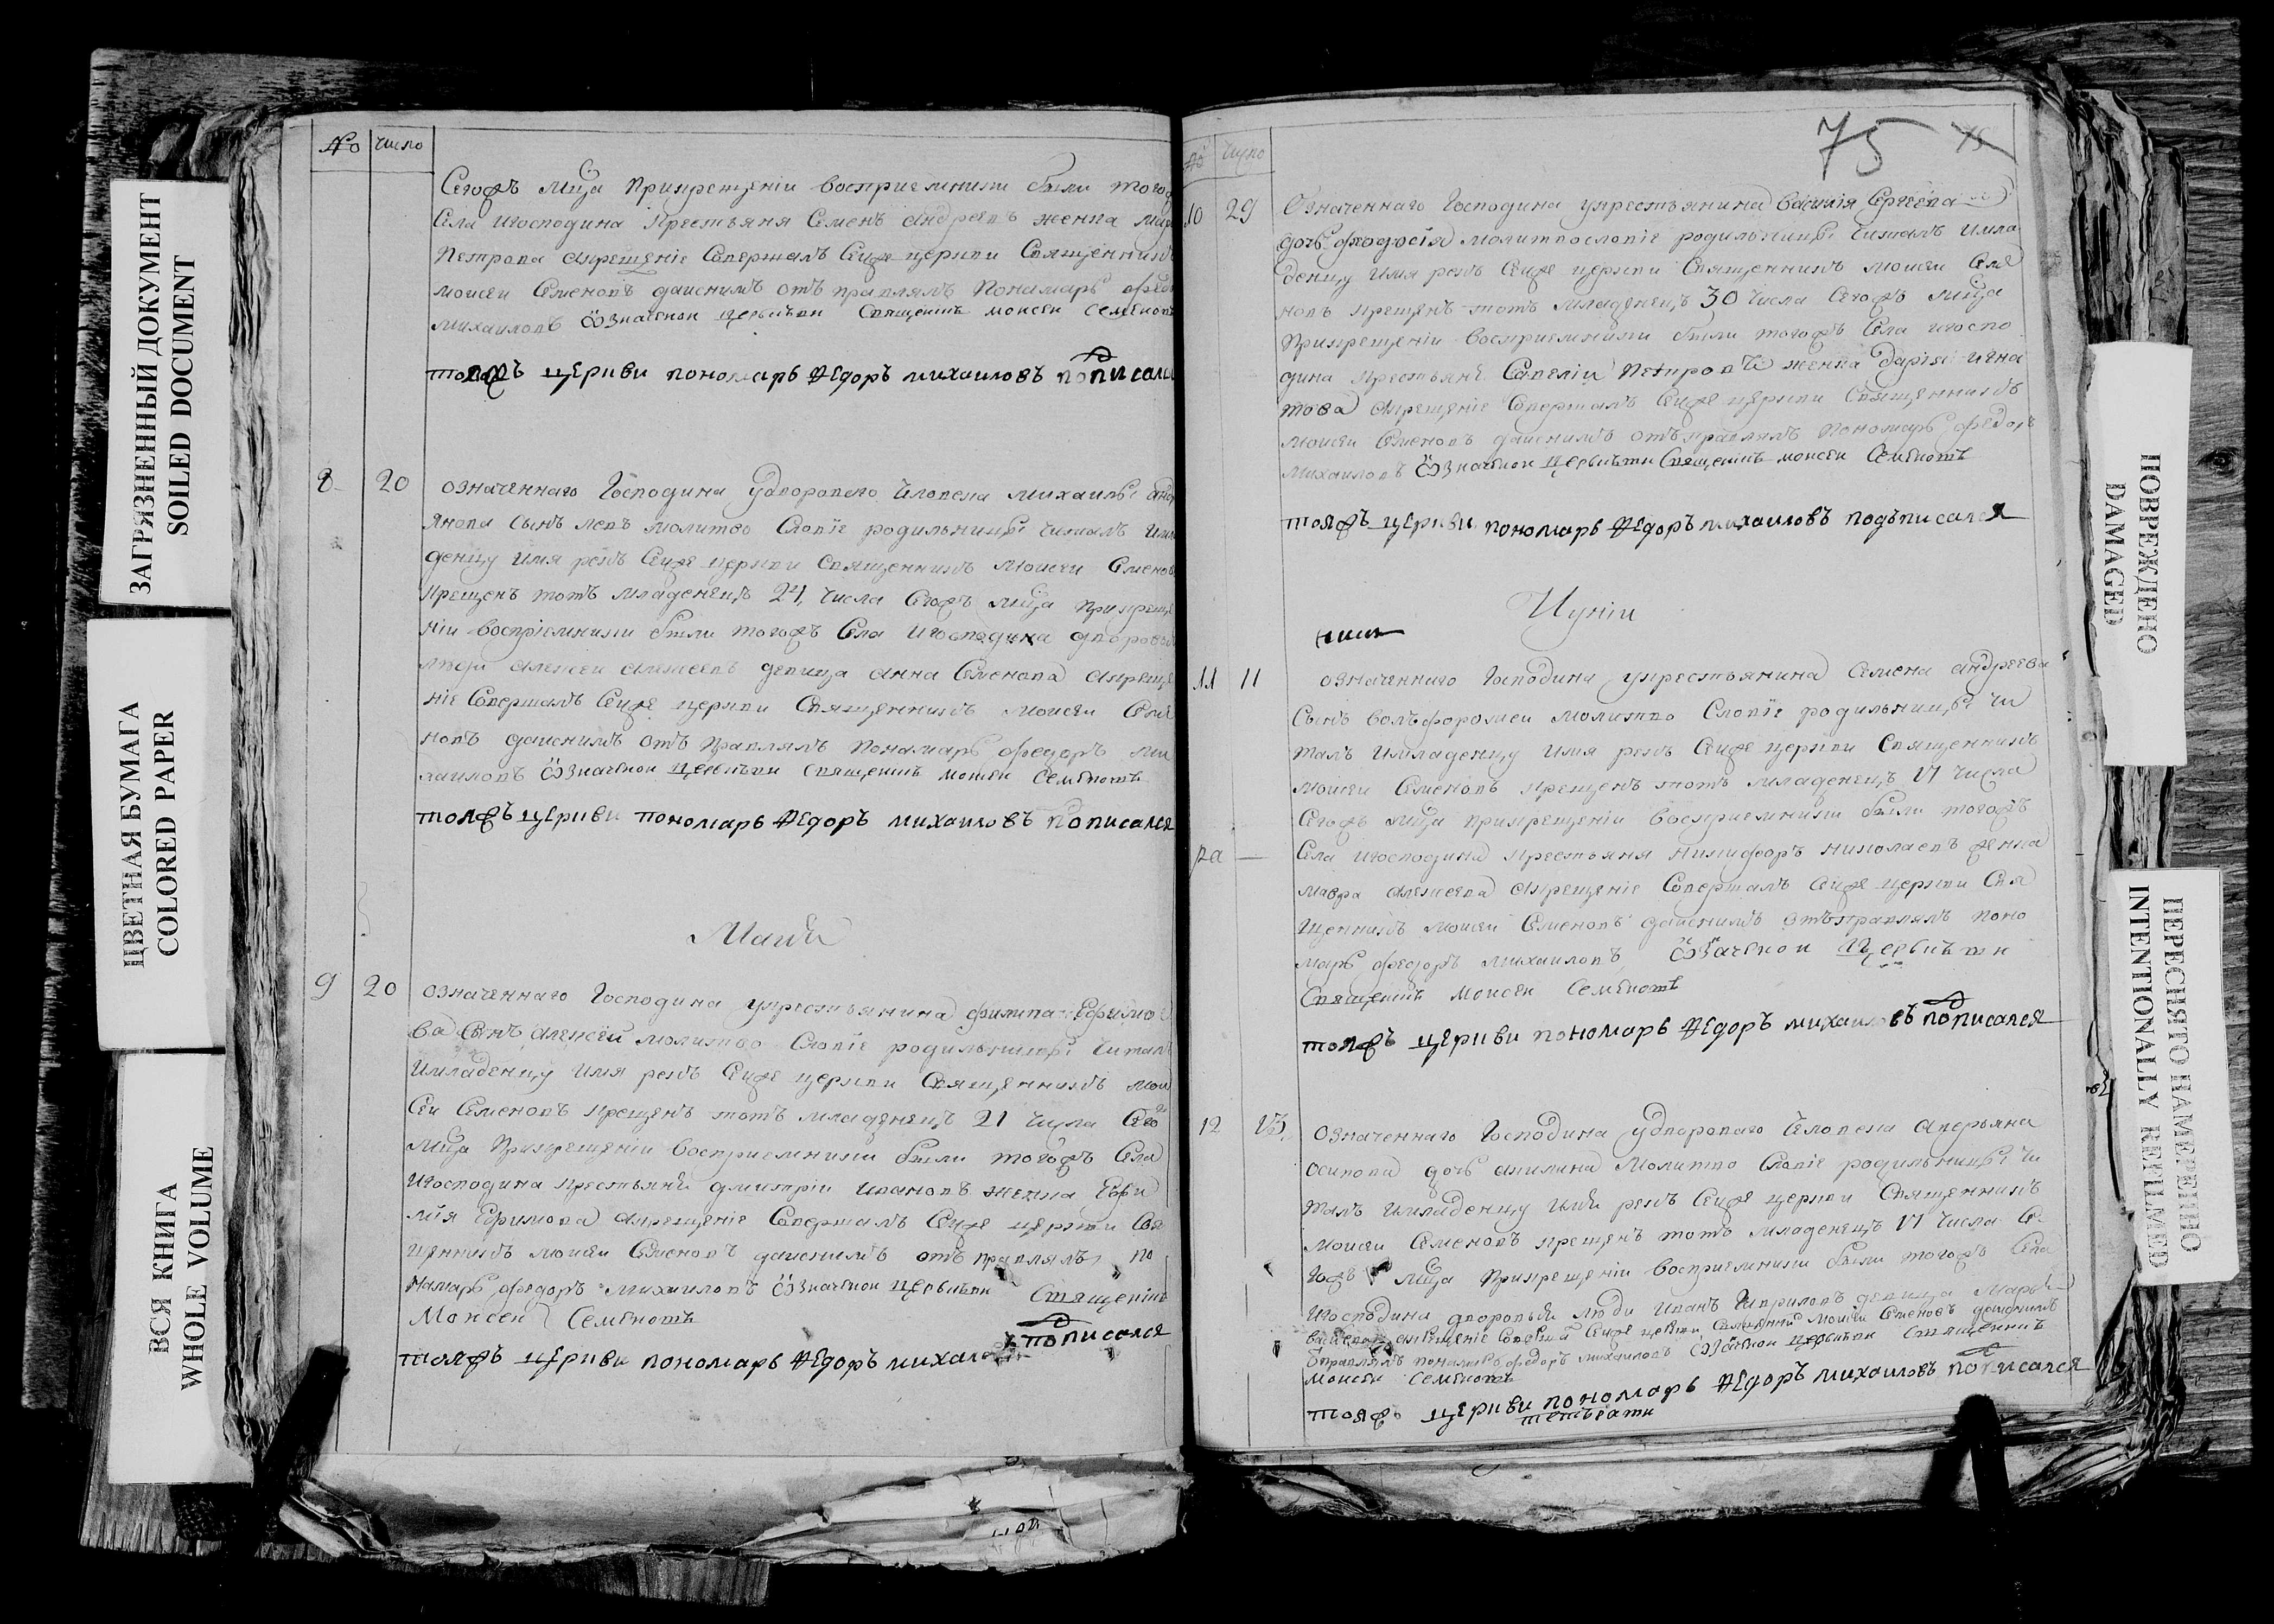 № число
Сегожъ мца прикрещеніи восприемники были тогож
села игосподина крестьяня Семенъ андреевъ женка
Петрова акрещеніе Совершалъ Сейже церкви Священникъ
моисеи Семеновъ даискимъ отъправлялъ Пономарь
михаиловъ означенои церкъви Священикъ моисеи Семеновъ
тояжъ церкви пономарь Федоръ михаиловъ пописался
8 20 означеннаго Господина удвороваго человека михаилы
янова сынъ левъ молитво Словіе родильницы читалъ
денцу имя рекъ Сейже церкви священникъ Моисеи Семеновъ
крещенъ тотъ младенецъ 24, числа Сегожъ мца прикреще
ніи воспріемники были тогожъ Села игосподина дворовые
люди алексеи алексеевъ девица анна Семенова акреще
ніе Совершалъ Сейже церкви Священникъ моисеи Семе
новъ даискимъ отъправлялъ пономарь федоръ ми
хаиловъ означенои церкъви священикъ моисеи Семеновъ
тояжъ церкви пономарь Федоръ михаиловъ пописался
Маия
9 20 означеннаго Господина укрестьянина филипа Ефимо
ва Сынъ Алексеи молитво Словіе родильницы читалъ
имладенцу имя рекъ Сейже церкви Священникъ мои
сеи Семеновъ крещенъ тотъ младенецъ 21 числа Сего
мца прикрещеніи восприемники были тогожъ Села
игосподина крестьяня дмитріи ивановъ женка Ефи
мія Ефимова акрещеніе Совершалъ Сейже церкви Свя
щенникъ моисеи Семеновъ даискимъ отъправлялъ по
намарь федоръ михаиловъ означенои церкъви Священикъ
Моисеи Семеновъ
тояжъ церкви пономарь Федоръ михаиловъ пописался
75 75
№ число
10 29 Означеннаго Господина укрестьянина василія Сергеева
дочь феодосія молитвословіе родильницы читалъ имла
денцу имя рекъ Сейже церкви Священникъ моисеи Семе
новъ крещенъ тотъ младенецъ 30 числа Сегожъ мца
прикрещеніи восприемники были тогожъ Села игоспо
дина крестьяне Савеліи Петровъ женка дарья игна
това акрещеніе Совершалъ Сейже церкви Священникъ
моисеи Семеновъ даискимъ отъправлялъ пономарь федоръ
михаиловъ означенои церкъви Священикъ моисеи Семеновъ
тояжъ церкви пономарь Федоръ михаиловъ подъписался
Иуніи
11 11 означеннаго Господина укрестьянина Семена андреева
Сынъ волъфоромеи молитво Словіе родильницы чи
талъ имладенцу имя рекъ Сейже церкви Священникъ
моисеи Семеновъ крещенъ тотъ младенецъ 17 числа
Сегожъ мца прикрещеніи восприемники были тогожъ
Села игосподина крестьяня никифоръ николаевъ женка
мавра алексеева акрещеніе Совершалъ Сейже церкви Свя
щенникъ моисеи Семеновъ даискимъ отъправлялъ поно
марь федоръ михаиловъ означенои церкъви
Священикъ Моисеи Семеновъ
тояжъ церкви пономарь Федоръ михаиловъ пописался
12 15 означеннаго Господина удвороваго человека аверьяна
осипова дочь акилина молитво Словіе родильницы чи
талъ имладенцу имя рекъ Сейже церкви Священникъ
моисеи Семеновъ крещенъ тотъ младенецъ 17 числа Се
гожъ мца прикрещеніи восприемники были тогожъ Села
игосподина дворовыя люди иванъ Гавриловъ девица марья
акрещеніе Сейже церкви Священникъ моисеи Семеновъ даискимъ
отправлялъ пономарь федоръ михаиловъ означенои церкъви Священикъ
моисеи Семеновъ
тояжъ церкви пономарь Федоръ михаиловъ пописался
ЗАГРЯЗНЕННЫЙ ДОКУМЕНТ
SOILED DOCUMENT
ЦВЕТНАЯ БУМАГА
COLORED PAPER
ВСЯ КНИГА
WHOLE VOLUME
ПОВРЕЖДЕНО
DAMAGED
ПЕРЕСНЯТО НАМЕРЕННО
INTENTIONALLY REFILMED